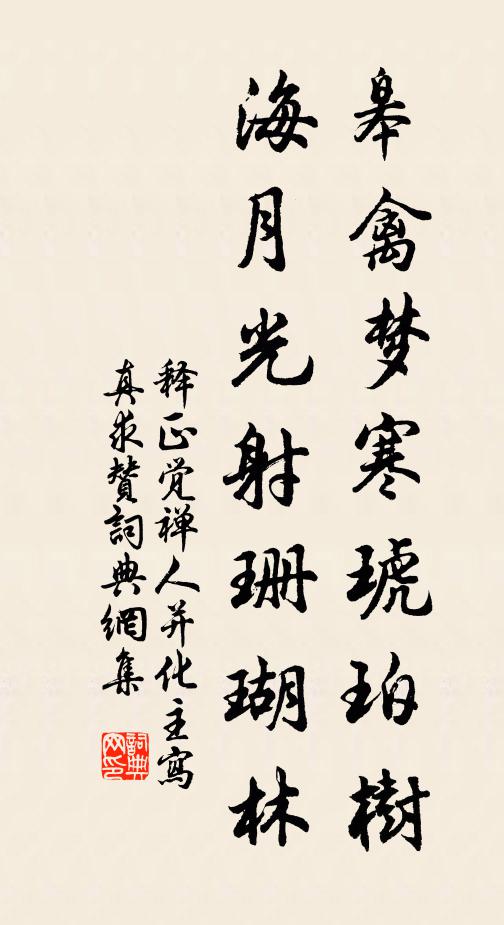 皋禽梦寒琥珀樹
海月光射珊瑚林
释正觉禅人并化主寫
真求贊詞典網集
詞典
网印